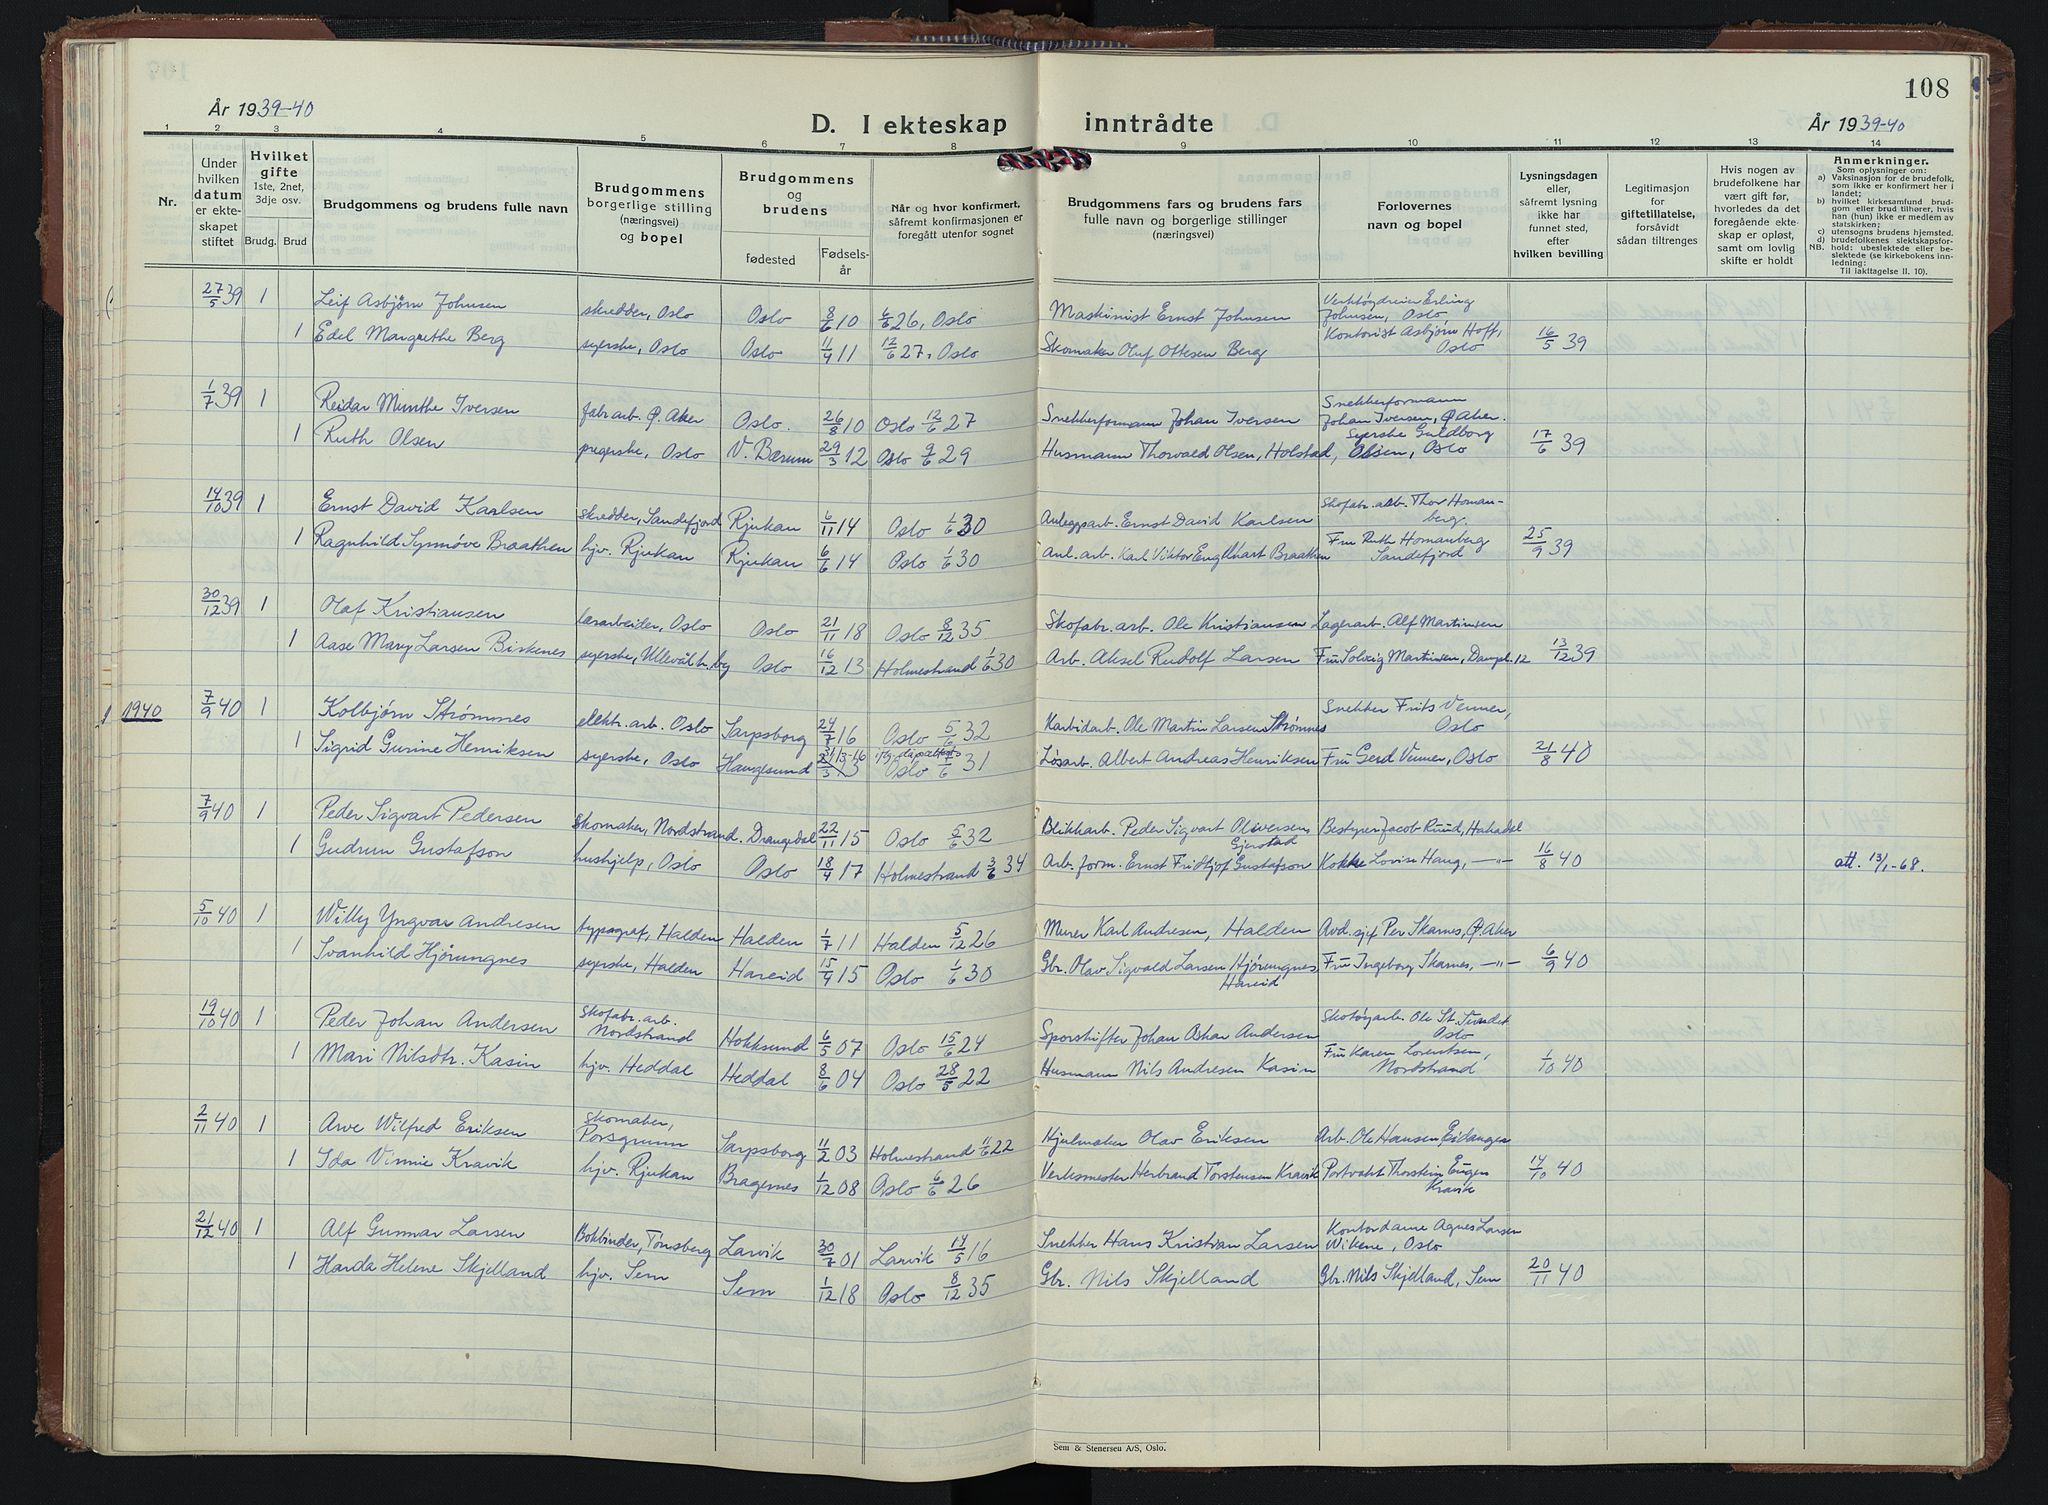 108
År 1939-40
D. I ekteskap inntrådte
År 1939-40
1 2 3 4 5 6 7 8 9 10 11 12 13 14
Nr.
Under hvilken datum er ekteskapet stiftet
Hvilket gifte 1ste, 2net, 3dje osv.
Brudg. Brud
Brudgommens og brudens fulle navn
Brudgommens borgerlige stilling (næringsvei) og bopel
Brudgommens og brudens
fødested
Fødselsår
Når og hvor konfirmert, såfremt konfirmasjonen er foregått utenfor sognet
Brudgommens fars og brudens fars fulle navn og borgerlige stillinger (næringsvei)
Forlovernes navn og bopel
Lysningsdagen eller, såfremt lysning ikke har funnet sted, efter hvilken bevilling
Legitimasjon for giftetillatelse, forsåvidt sådan tiltrenges
Hvis nogen av brudefolkene har vært gift før, hvorledes da det foregående ekteskap er opløst, samt om lovlig skifte er holdt
Anmerkninger.
Som oplysninger om:
a) Vaksinasjon for de brudefolk, som ikke er konfirmert her i landet;
b) hvilket kirkesamfund brudgom eller brud tilhører, hvis han (hun) ikke er medlem av statskirken;
c) utensogns brudens hjemsted.
d) brudefolkenes slektskapsforhold: ubeslektede eller beslektede (se kirkebokens innledning:
NB.
Til iakttagelse II. 10).
27/5 39 1 Leif Asbjørn Johnsen skredder, Oslo Oslo 8/6 10 6/6 26, Oslo Maskinist Ernst Johnsen Verktøydreier Erling Johnsen, Oslo
1 Edel Margrethe Berg syerske, Oslo Oslo 11/4 11 12/6 27, Oslo Skomaker Oluf Ottesen Berg Kontorist Asbjørn Hoff, Oslo 16/5 39
1/7 39 1 Reidar Munthe Iversen fabr.arb. Ø. Aker Oslo. 26/8 10 Oslo 12/6 27 Snekkerformann Johan Iversen Snekkerformann Johan Iversen, Ø. Aker.
1 Ruth Olsen pregerske, Oslo V. Bærum 29/3 12 Oslo 9/6 29 Husmann Thorvald Olsen, Holstad, Syerske Guldborg Olsen, Oslo 17/6 39
14/10 39 1 Ernst David Kaalsen skredder, Sandefjord Rjukan 6/11 14 Oslo 1/6 30 Anleggsarb. Ernst David Karlsen Skofabr. arb. Thor Homanberg.
1 Ragnhild Synnøve Braathen hjv. Rjukan Rjukan 6/6 14 Oslo 1/6 30 Anl. arb. Karl Viktor Engelhart Braathen Fru Ruth Homanberg Sandefjord 25/9 39
30/12 39 1 Olaf Kristiansen lærarbeider, Oslo Oslo 21/11 18 Oslo 8/12 35 Skofabr. arb. Ole Kristiansen Lagerarb. Alf Martinsen
1 Aase Mary Larsen Biskenes syerske, Ullevål h.by Oslo 16/12 13 Holmestrand 1/6 30 Arb. Aksel Rudolf Larsen Fru Solveig Martinsen, Dampl. 12 13/12 39
1940 7/9 40 1 Kolbjørn Strømnes elektr. arb. Oslo Sarpsborg 24/7 16 Oslo 5/6 32 Karbidarb. Ole Martin Larsen Strømnes Snekker Frits Venner, Oslo
1 Sigrid Gurine Henriksen syerske, Oslo Haugesund Oslo 7/6 31 Løsarb. Albert Andreas Henriksen Fru Gerd Venner, Oslo 21/8 40
7/9 40 1 Peder Sigvart Pedersen skomaker, Nordstrand. Drangedal 22/11 15 Oslo 5/6 32 Blikkarb. Peder Sigvart Oliversen Gjerstad Bestyrer Jacob Ruud, Hakadal
1 Gudrun Gustafson hushjelp, Oslo Oslo 18/4 17 Holmestrand 3/6 34 Arb. form. Ernst Fridtjof Gustafson Kokke Lovise Haug, —"— 16/8 40 att. 13/1-68.
5/10 40 1 Willy Yngvar Andresen typograf, Halden Halden 1/7 11 Halden 5/12 26 Murer Karl Andresen, Halden Avd. sjef Per Skarnes, Ø. Aker
1 Svanhild Hjørungnes syerske, Halden Hareid 15/4 15 Oslo 1/6 30 Gbr. Olav Sigvald Larsen Hjørungnes Hareid Fru Ingeborg Skarnes, —"— 6/9 40
19/10 40 1 Peder Johan Andersen Skofabr. arb. Nordstrand Hokksund 6/5 07 Oslo 15/6 24 Sporskifter Johan Oskar Andersen Skotøyarb. Ole St. Sundet Oslo
1 Mari Nilsdtr. Kasin hjv. Heddal Heddal 8/6 04 Oslo 28/5 22 Husmann Nils Andresen Kasin Fru Karen Lorentsen, Nordstrand 1/10 40
2/11 40 1 Arve Wilfred Eriksen skomaker, Porsgrunn Sarpsborg 11/2 03 Holmestrand 11/6 22 Hjulmaker Olav Eriksen Arb. Ole Hansen, Eidanger
1 Ida Vinnie Kravik hjv. Rjukan Bragernes 1/12 08 Oslo 6/6 26 Verksmester Herbrand Torstensen Kravik Portvakt Thorstein Eugen Kravik 14/10 40
21/12 40 1 Alf Gunnar Larsen Bokbinder, Tønsberg Larvik 30/7 01 Larvik 14/5 16 Snekker Hans Kristian Larsen Kontordame Agnes Larsen Wikene, Oslo
1 Harda Helene Skjelland hjv. Sem Sem 1/12 18 Oslo 8/12 35 Gbr. Nils Skjelland Gbr. Nils Skjelland, Sem 20/11 40
Sem & Stenersen A/S, Oslo.